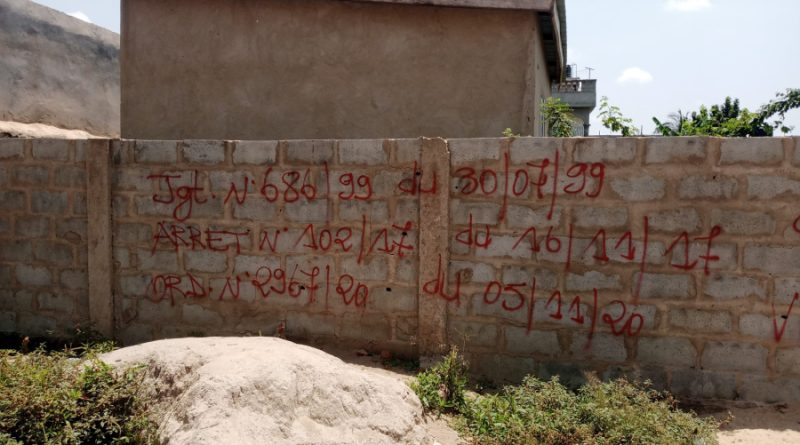 Jgt. N° 686/99 du 30/07/99
ARRET N° 102/17 du 16/11/17
ORD. N° 2967/20 du 05/11/20